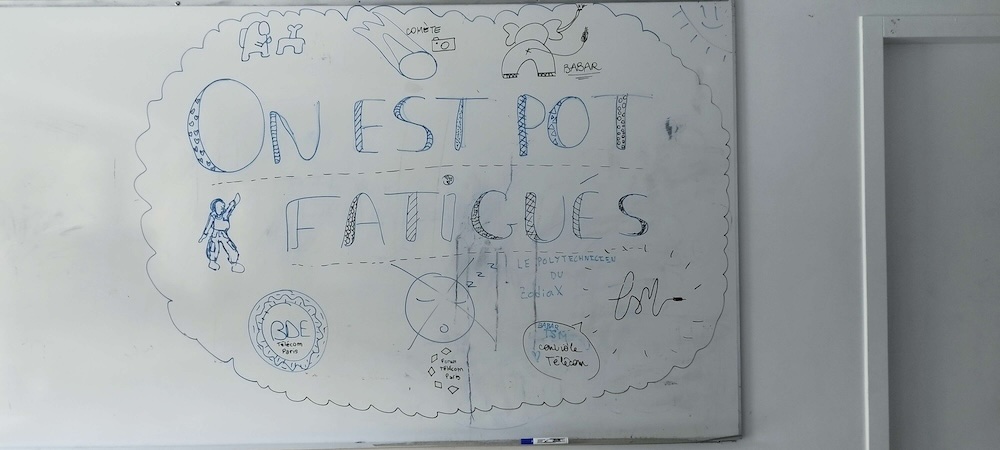 COMÈTE
BABAR
ON EST POT
FATIGUÉS
Z Z Z
LE POLYTECHNICIEN
DU
ZodiaX
BDE
Télécom
Paris
Télécom
Paris
BABAR
contrôle
Télécom